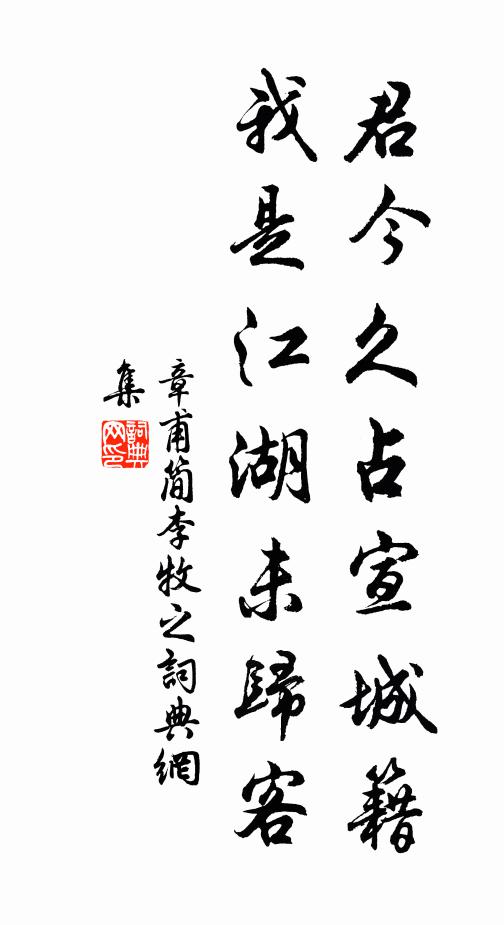 君今久占宣城籍
我是江湖未歸客
章甫簡李牧之詞典網
集
詞典
网印